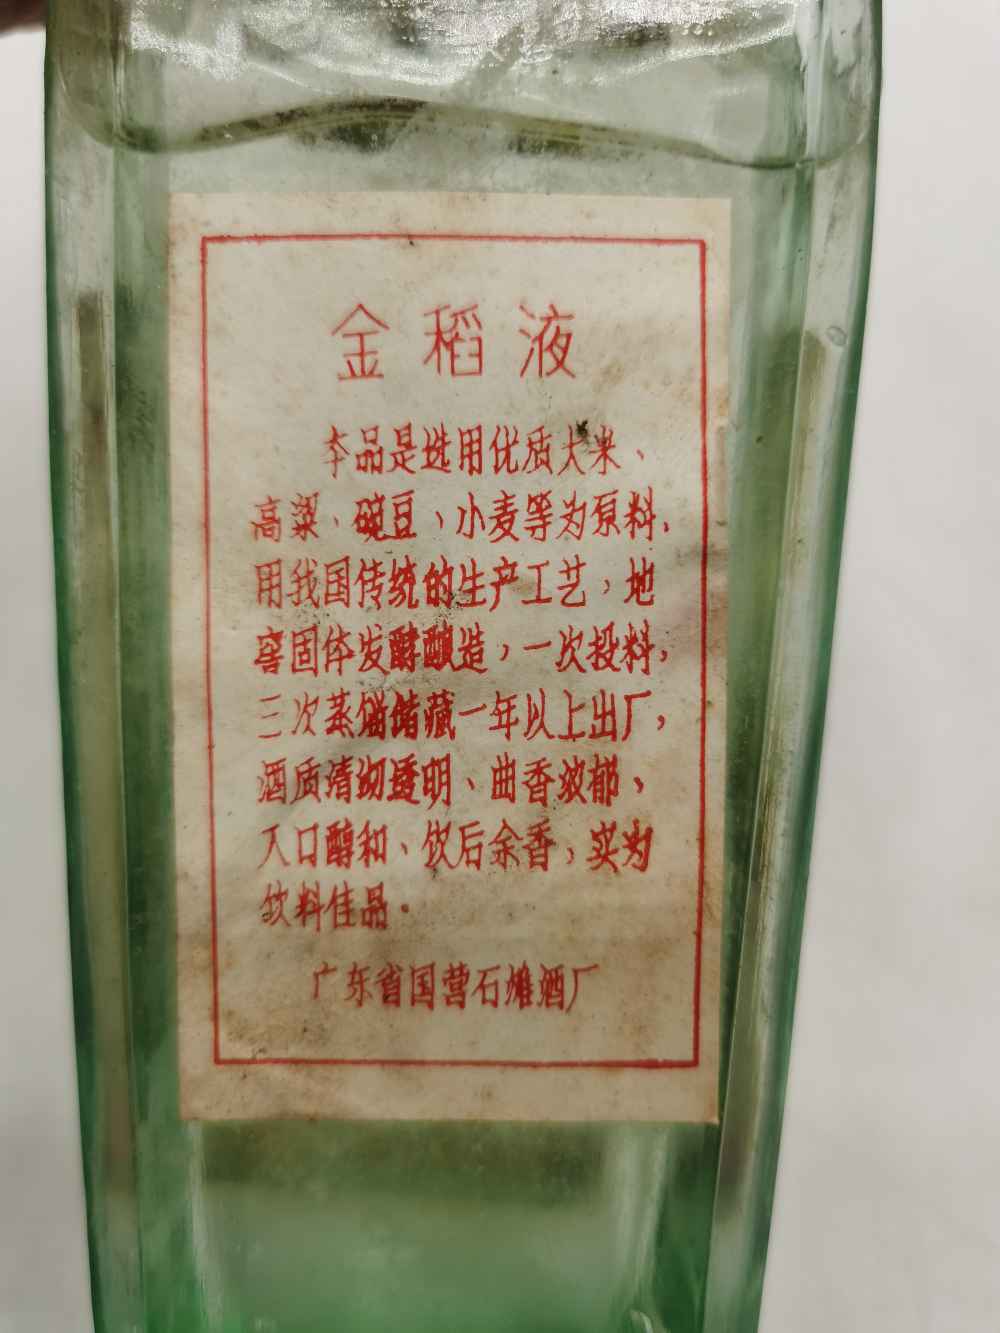 金稻液
本品是选用优质大米、
高粱、碗豆、小麦等为原料,
用我国传统的生产工艺,地
窖固体发酵酿造,一次投料,
三次蒸馏储藏一年以上出厂,
酒质清沏透明、曲香浓郁,
入口醇和、饮后余香,实为
饮料佳品。
广东省国营石滩酒厂